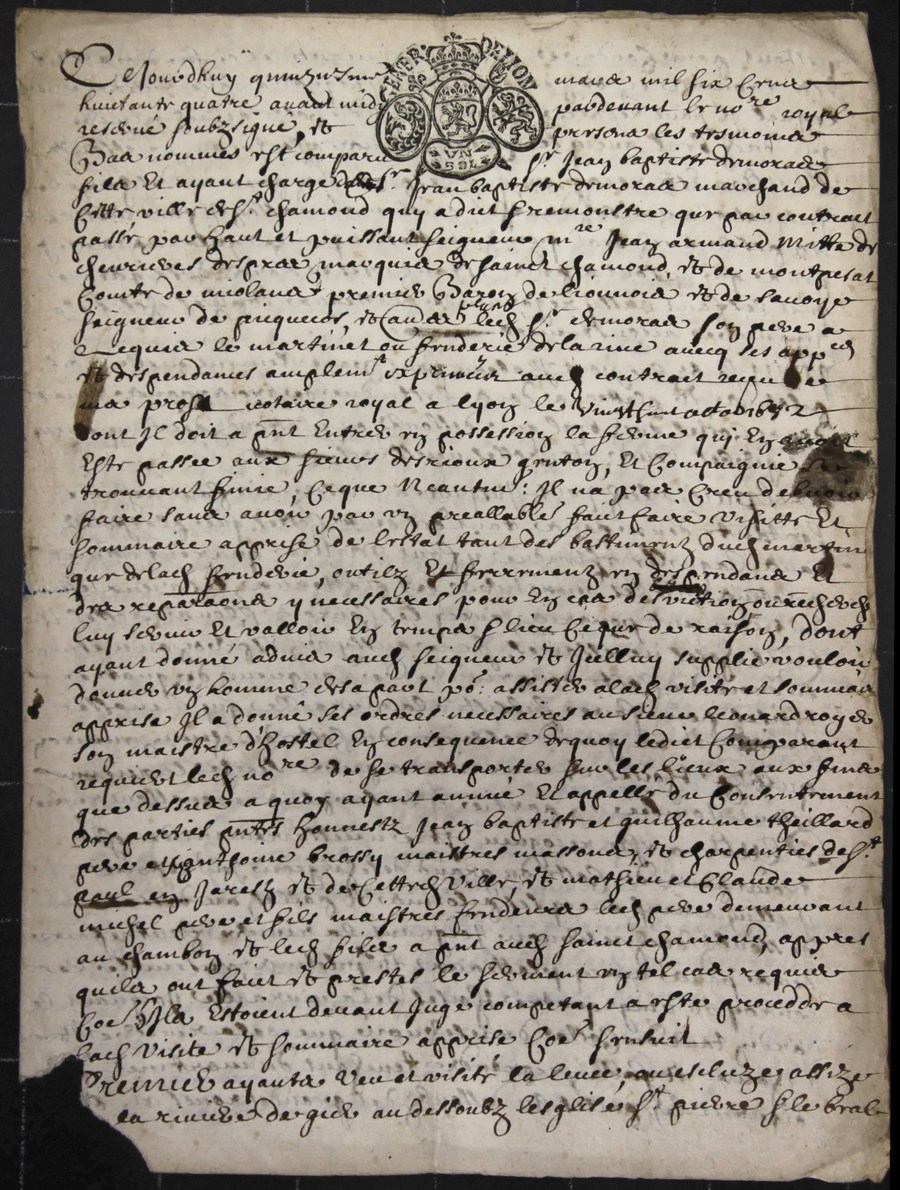 GENER DE LYON
UN SOL
Cejourdhuy quinziesme mars mil six cens
huictante quatre avant midy pardevant le no.re royal
reservé soubzsigné, et presens les tesmoins
Bas nommes est comparu sr Jean baptiste demoras
fils Et ayant charge de sr Jean baptiste demoras marchand de
Cette ville de st chamond quy a dict & remonstre que par contract
passé par haut et puissant seigneur mre Jean armand Mitte de
chevrieres marquis de sainct chamond, et de montpesat
Comte de miolans premier Baron de lionnois et de savoye
seigneur de et led sr demoras son pere a
acquis le martinet ou fenderie de la rive avecq ses appces
et despendances amplemt exprimées aud contract reçu
notaire royal a lyon le vingthuict
dont Il doit a pnt Entrer en possession la ferme quy En
Este passee aux sieurs desrioux Et Compaignie se
trouvant finie, Ce que Neantm: Il na pas Creu debvoir
faire sans avoir par un preallable faict faire visitte Et
sommaire apprise de lestat tant des bastiments dud martinet
que de lad fenderie, outilz Et ferrements en despendans Et
des reparaons y necessaires pour En cas deviction ou recherche
luy servir Et valloir En temps & lieu Ce que de raison, dont
ayant donné advis aud seigneur et Icelluy supplié vouloir
donner un homme de sa part po: assister a lad visite et sommaire
apprise Il a donné ses ordres necessaires au sieur leonard
son maistre d'hostel En consequence dequoy ledict Comparant
requiert led nore de se transporter sur les lieux aux fins
que dessus a quoy ayant Et appellé du Consentement
des parties pntes honnestz Jean baptiste et guilhaume theillard
pere et anthoine brossy maistres massons, et charpentiers de st
paul en Jarestz et de Cetted Ville, et mathieu et Claude
michel pere et fils maistres fendeurs led pere demeurant
au chambon et led fils a pnt aud sainct chamond, appres
quils ont faict et prestes le serment en tel cas requis
Coe sils Estoient devant Juge competant a este proceddé a
lad visite et sommaire apprise Coe sensuit
Premier ayants veu et visité la levee, ou escluze assize
la riviere de gier au dessoubz lesglise st pierre & le